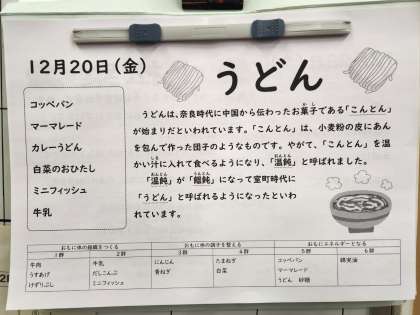 12月20日(金)
うどん
コッペパン
マーマレード
カレーうどん
白菜のおひたし
ミニフィッシュ
牛乳
うどんは、奈良時代に中国から伝わったお菓子である「こんとん」
が始まりだといわれています。「こんとん」は、小麦粉の皮にあん
を包んで作った団子のようなものです。やがて、「こんとん」を温
かい汁に入れて食べるようになり、「温飩」と呼ばれました。
「温飩」が「饂飩」になって室町時代に
「うどん」と呼ばれるようになったといわ
れています。
おもに体の組織をつくる おもに体の調子を整える おもにエネルギーとなる
1群 2群 3群 4群 5群 6群
牛肉 牛乳 にんじん たまねぎ コッペパン 綿実油
うすあげ だしこんぶ 青ねぎ 白菜 マーマレード
けずりぶし ミニフィッシュ うどん 砂糖